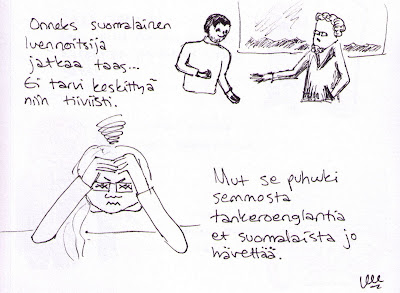 Onneks suomalainen
luennoitsija
jatkaa taas...
Ei tarvi keskittyä
niin tiiviisti.
Mut se puhuki
semmosta
tankeroenglantia
et suomalaista jo
hävettää.